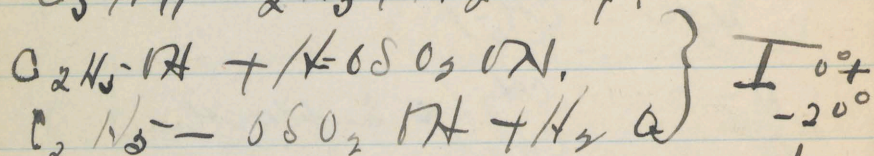 C2H5-OH + H-OSO2OH. } I 0°+
C2H5 - OSO2 OH + H2 O } -20°